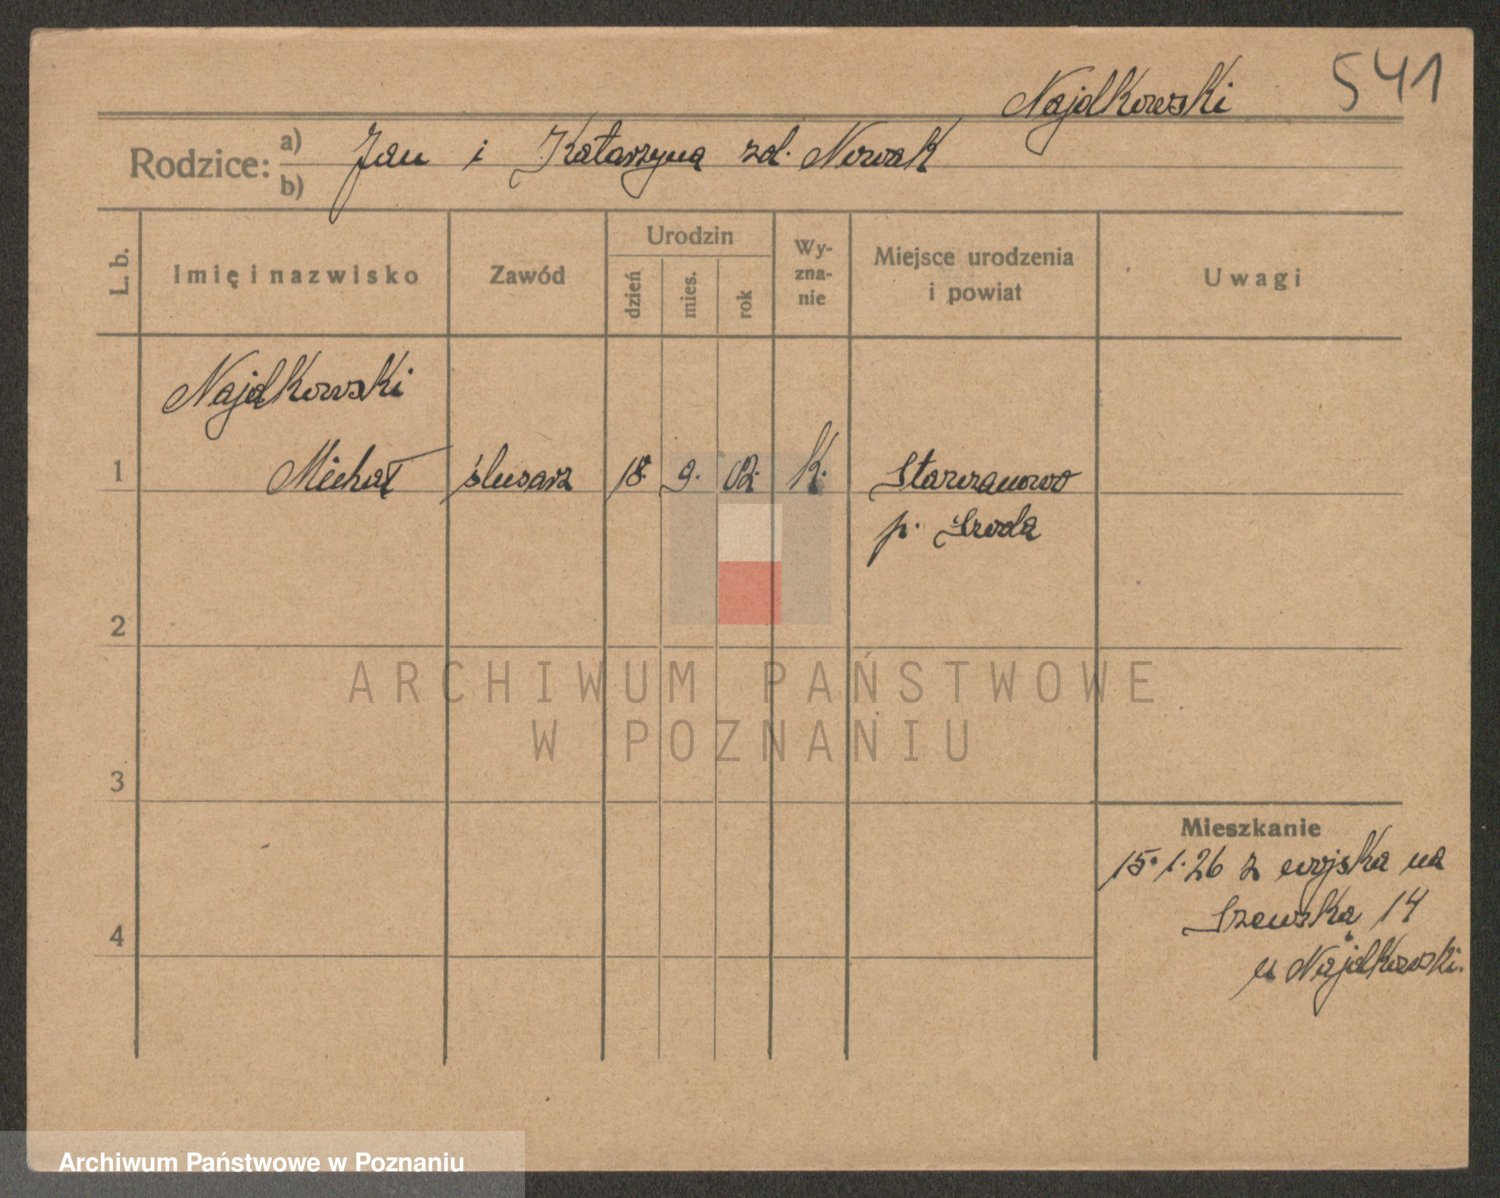 Najdkowski 541
Rodzice: a) b) Jan i Katarzyna zd. Nowak
L. b. Imię i nazwisko Zawód Urodzin dzień mies. rok Wy-zna-nie Miejsce urodzenia i powiat Uwagi
Najdkowski
1 Michał ślusarz 18. 9. 02. k.
p. Środa
2
ARCHIWUM PAŃSTWOWE
W POZNANIU
3
Mieszkanie
15.1.26 z wojska na
4 Szewską 14
u Najdkowski.
Archiwum Państwowe w Poznaniu